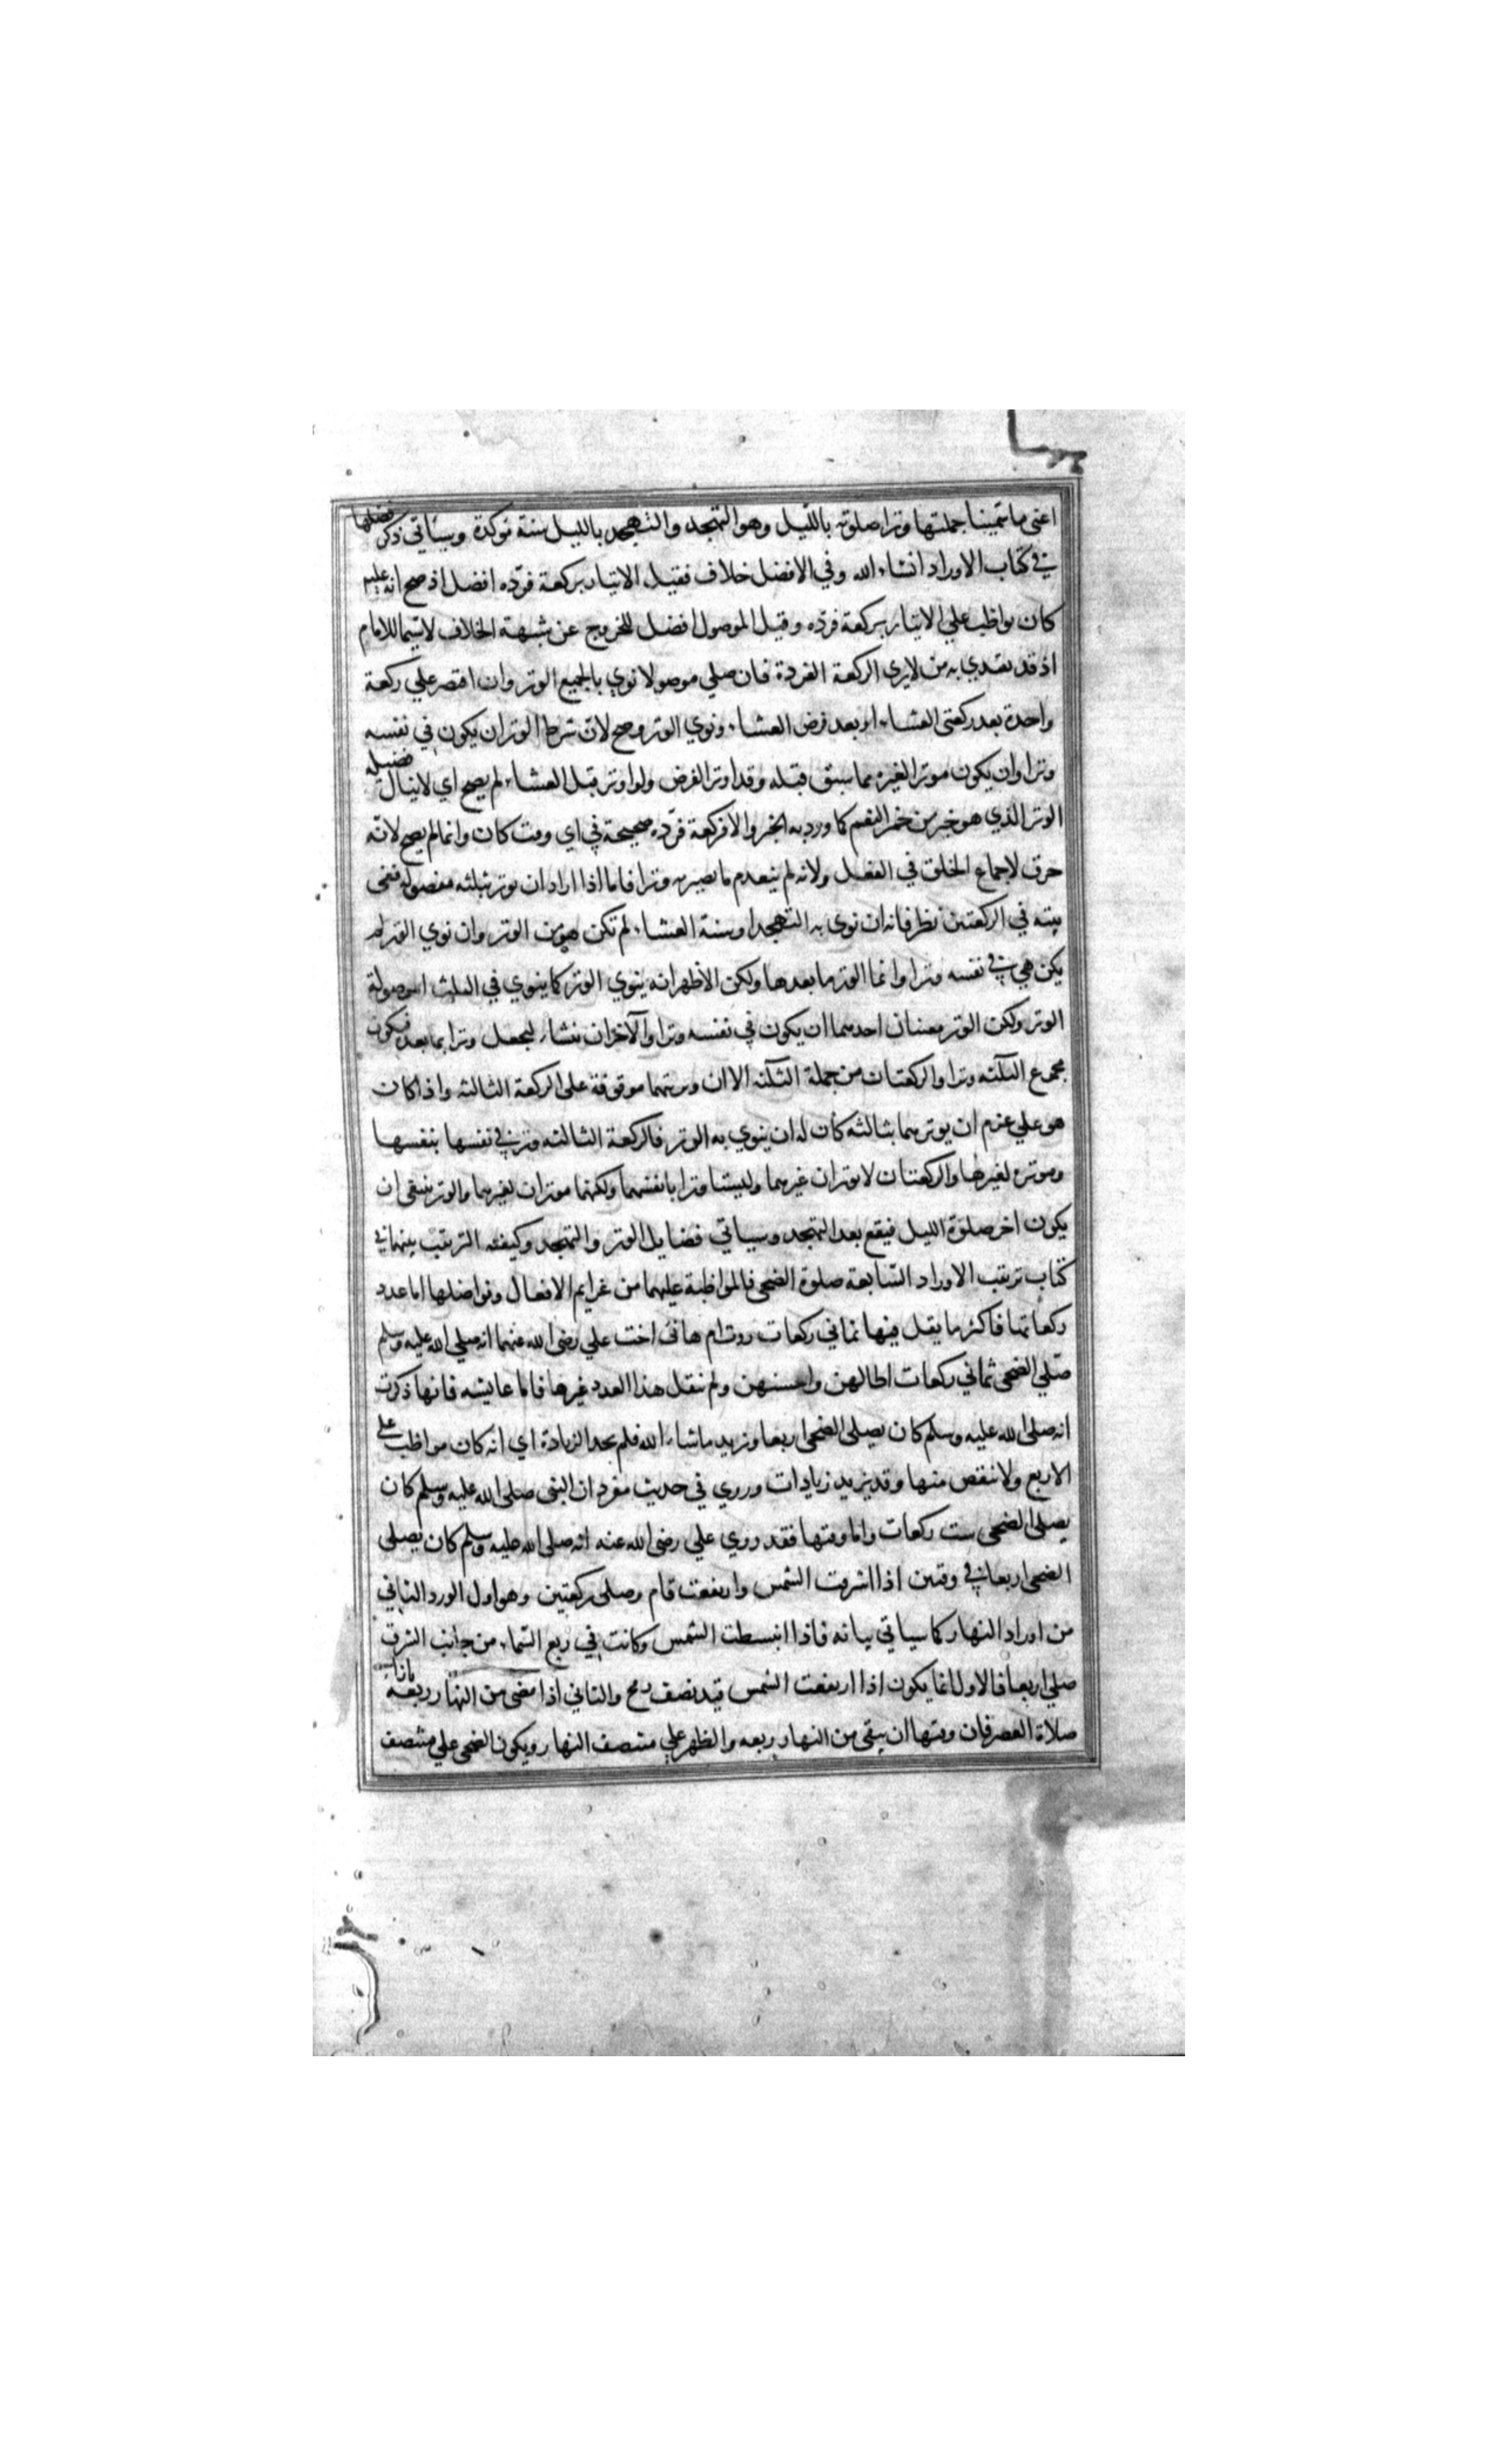 اعنى ما سمينا جملتها وترا صلوته بالليل وهو التهجد والتهجد بالليل سنة موكدة وسياتى ذكر فضلها
في كتاب الاوراد انشاء الله وفي الافضل خلاف فقيل الايتار بركعة فرده افضل اذ صح انه عليم
كان يواظب علي الايتار بركعة فرده وقيل الموصول افضل للخروج عن شبهة الخلاف لاسيما للامام
اذ قد يقتدي به من لا يرى الركعة الفردة فان صلي موصولا نوي بالجميع الوتر وان اقتصر علي ركعة
واحدة بعد ركعتى العشاء او بعد فرض العشاء ونوي الوتر وصح لان شرط الوتر ان يكون في نفسه
وترا وان يكون موترا لغيره مما سبق قبله وقد اوتر الفرض ولو اوتر قبل العشاء لم يصح اي لا ينال فضيله
الوتر الذي هو خير من حمر النعم كما ورد به الخبر والا فركعة فرده صحيحة في اي وقت كان وانما لم يصح لانه
خرق لاجماع الخلق في الفعل ولانه لم يتقدم ما يصير به وترا فاما اذا اراد ان يوتر بثلثه مفصوله ففى
نيته في الركعتين نظر فانه ان نوى به التهجد او سنة العشاء لم تكن هو من الوتر وان نوي الوتر لم
يكن هي في نفسه وترا وانما الوتر ما بعدها ولكن الاظهر انه ينوي الوتر كما ينوي في الثلث الموصولة
الوتر ولكن الوتر معنيان احدهما ان يكون في نفسه وترا والآخر ان ينشاء ليجعل وترا بما بعده فيكون
مجموع الثلثه وترا والركعتان من جملة الثلثه الا ان وتريتهما موقوفة على الركعة الثالثه واذا كان
هو علي عزم ان يوترهما بثالثه كان له ان ينوي به الوتر فالركعة الثالثه وتر في نفسها بنفسها
وموتره لغيرها والركعتان لا يوتران غيرهما وليستا وترا بانفسهما ولكنهما موتران لغيرهما والوتر ينبغى ان
يكون اخر صلوة الليل فيقع بعد التهجد وسياتي فضايل الوتر والتهجد وكيفيه الترتيب بينهما في
كتاب ترتيب الاوراد السابعة صلوة الضحى فالمواظبة عليهما من عزايم الافعال وفواضلها اما عدد
ركعاتها فاكثر ما نقل فيها ثماني ركعات روت ام هانى اخت علي رضى الله عنهما انه صلي الله عليه وسلم
صلي الضحى ثماني ركعات اطالهن واحسنهن ولم ينقل هذا العدد غيرها فاما عايشه فانها ذكرت
انه صلى الله عليه وسلم كان يصلى الضحى اربعا ويزيد ماشاء الله فلم يحد الزيادة اي انه كان مواظب على
الاربع ولا ينقص منها وقد يزيد زيادات وروي في حديث مفرد ان النبى صلى الله عليه وسلم كان
يصلى الضحى ست ركعات واما وقتها فقد روي علي رضى الله عنه انه صلى الله عليه وسلم كان يصلى
الضحى اربعا في وقتين اذا اشرقت الشمس وارتفعت قام وصلى ركعتين وهو اول الورد الثاني
من اوراد النهار كما سياتي بيانه فاذا انبسطت الشمس وكانت في ربع السماء من جانب الشرق
صلي اربعا فالاول انما يكون اذا ارتفعت الشمس قيد نصف رمح والثاني اذا مضى من النهار ربعه بازاء
صلاة العصر فان وقتها ان يبقى من النهار ربعه والظهر علي منتصف النهار ويكون الضحى علي منتصف